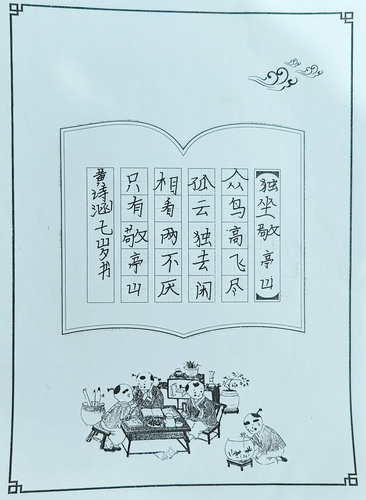 独坐敬亭山
众鸟高飞尽
孤云独去闲
相看两不厌
只有敬亭山
黄诗涵七岁书